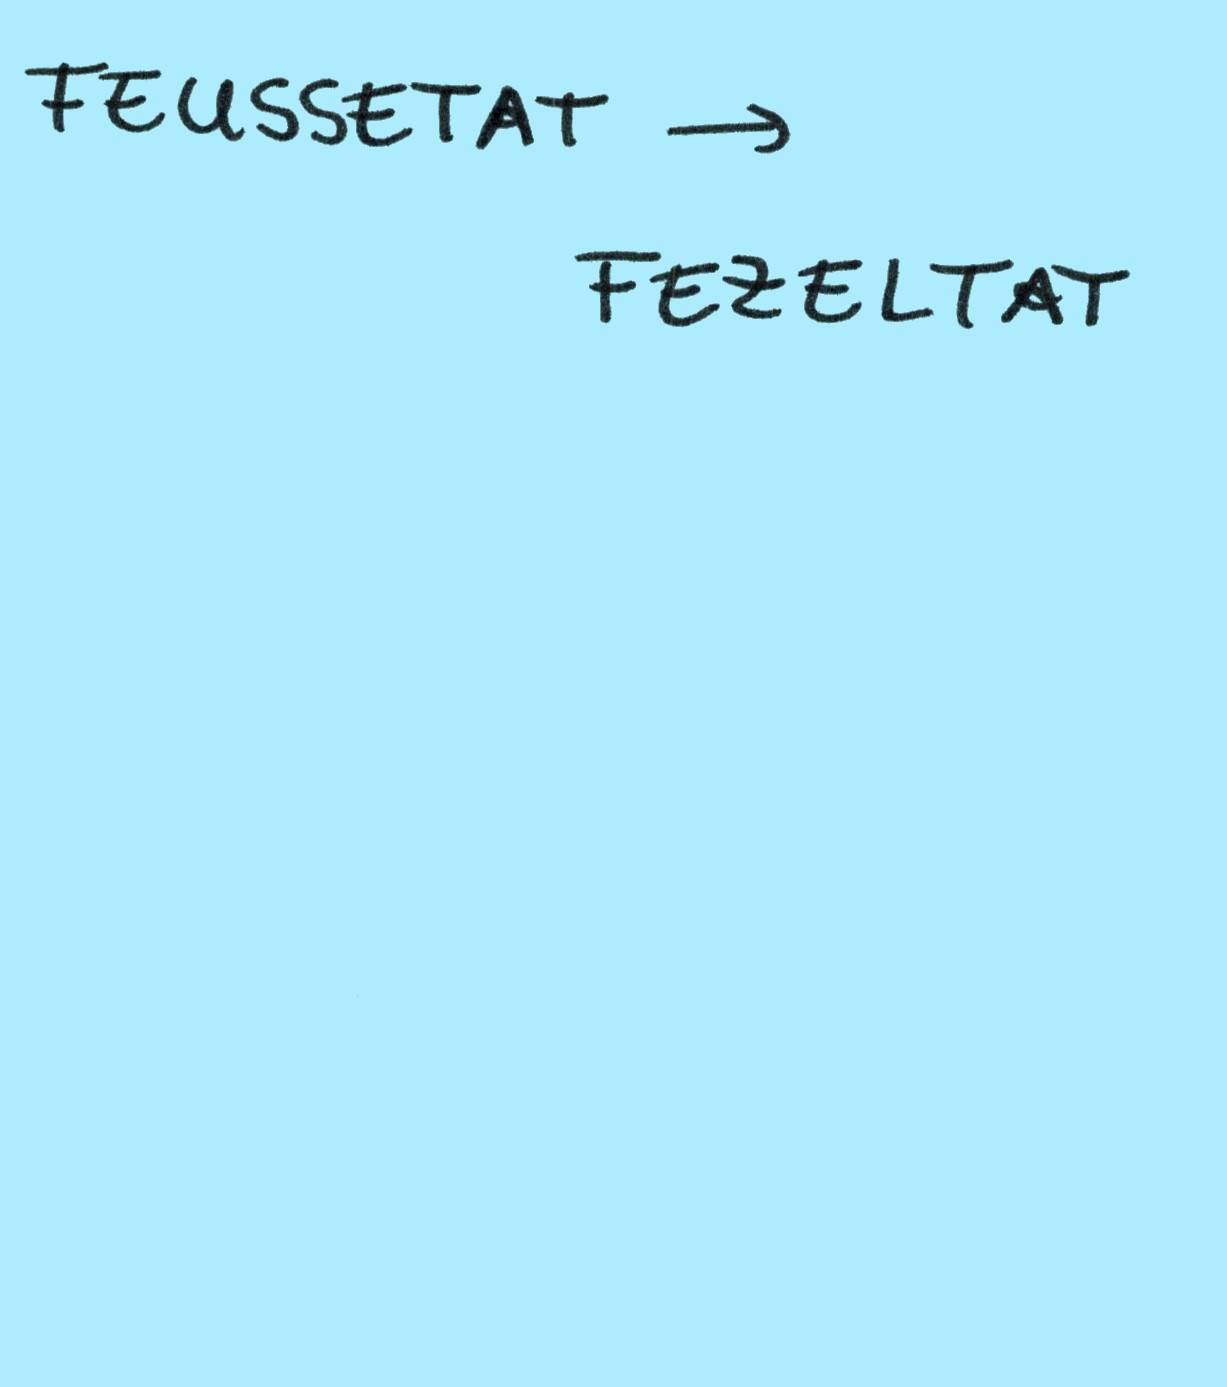 FEUSSETAT →
FEZELTAT